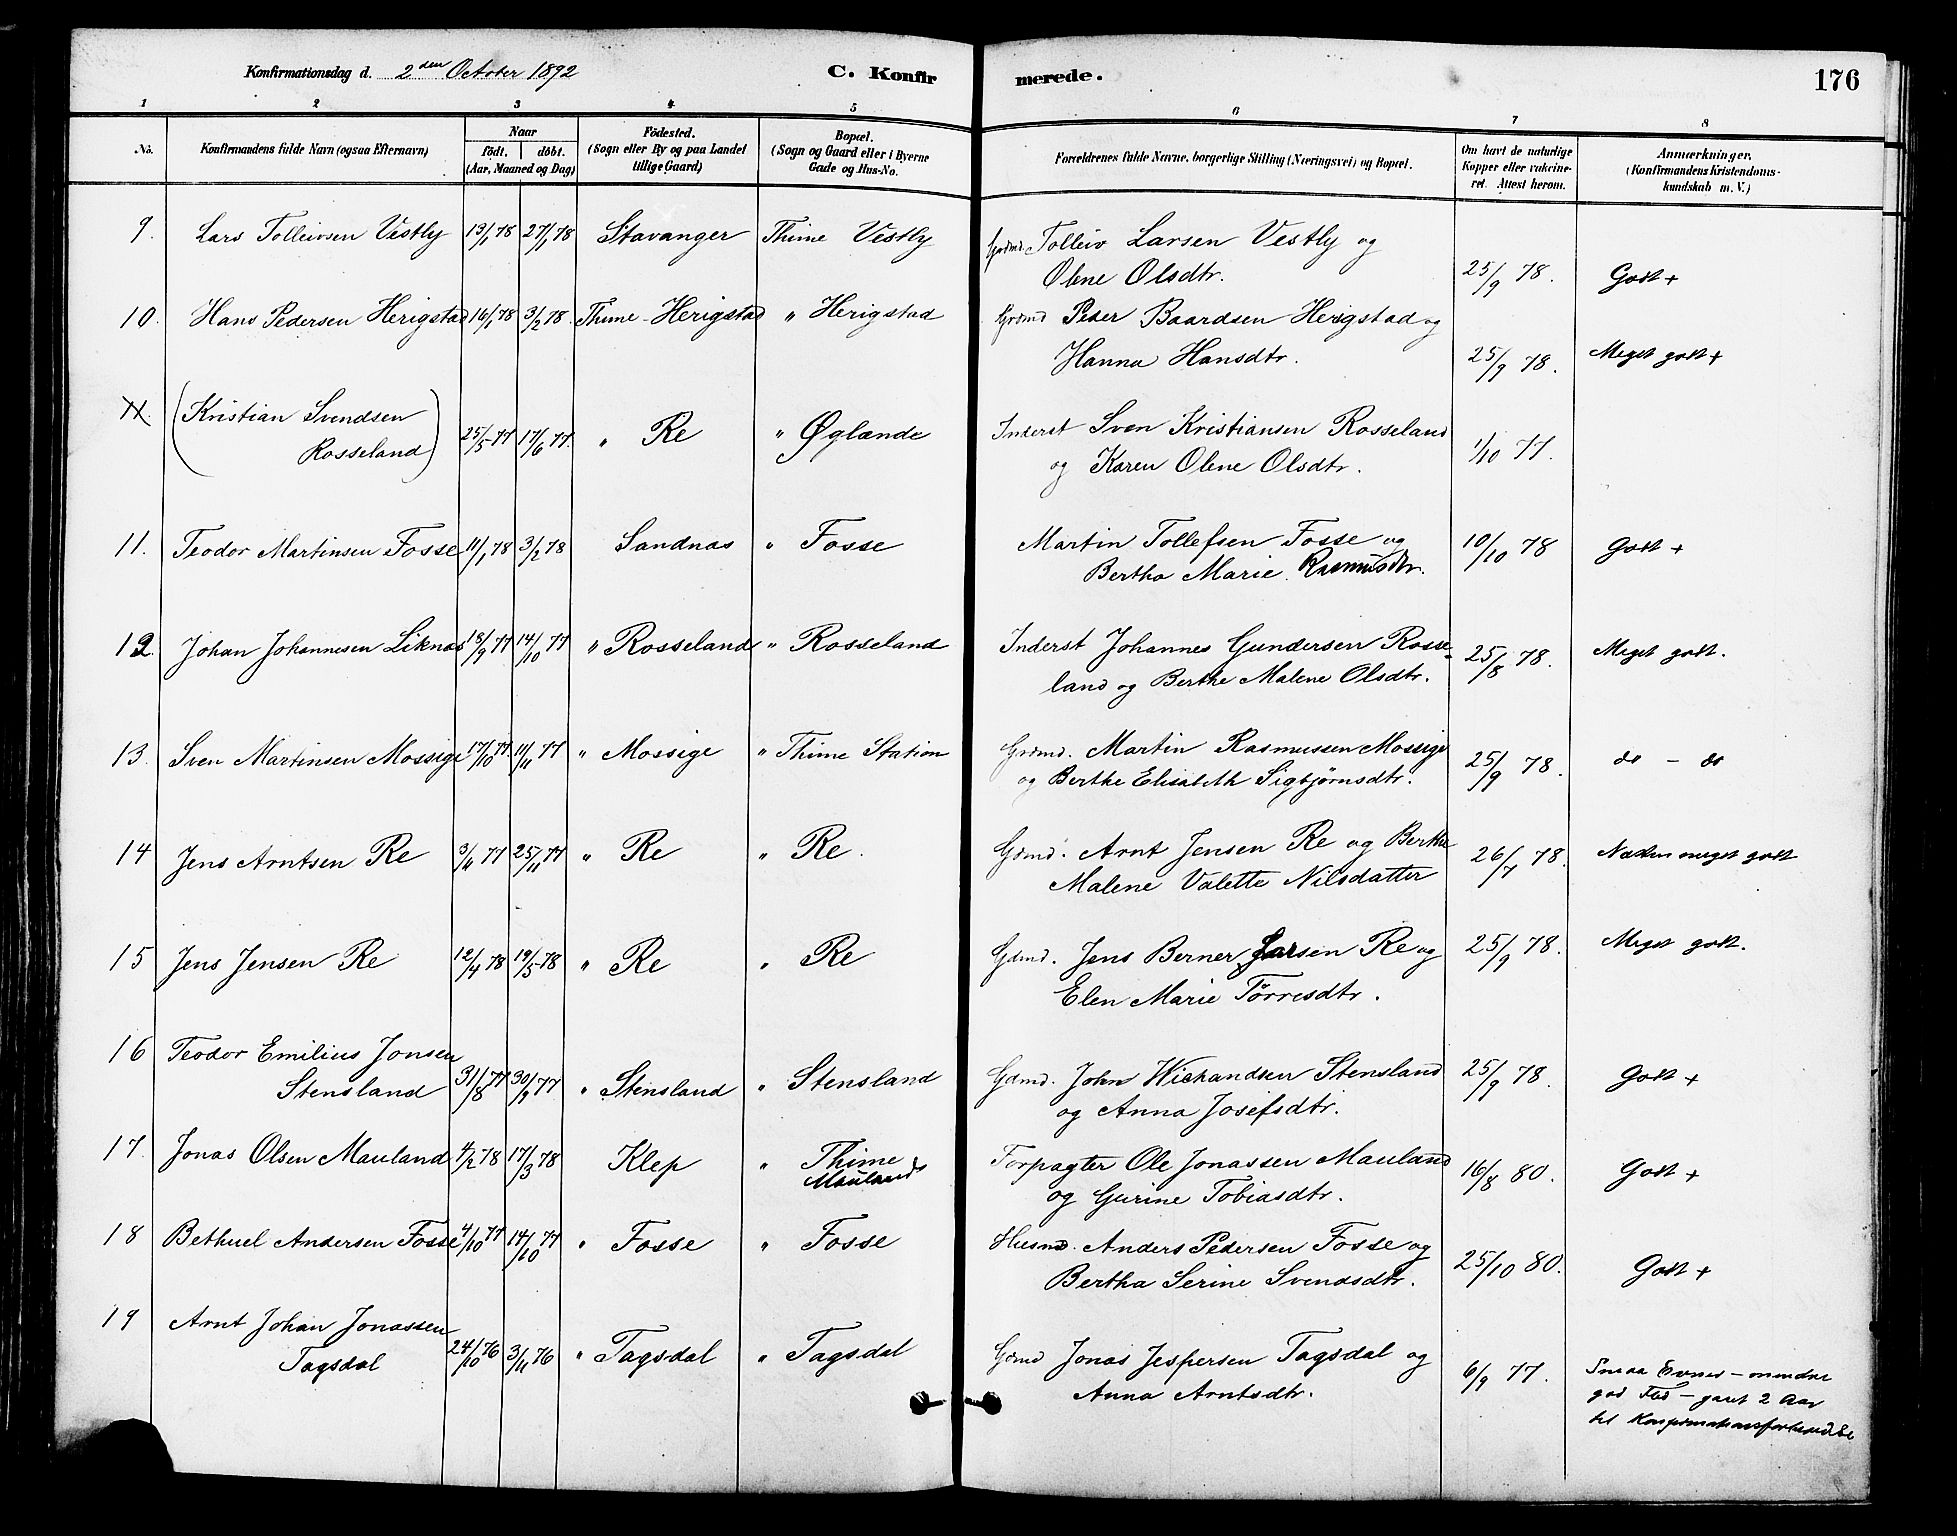 Konfirmationsdag d. 2den October 1892
C. Konfirmerede.
176
1 2 3 4 5 6 7 8
No. Konfirmandens fulde Navn (ogsaa Efternavn) Naar født. døbt. (Aar, Maaned og Dag) Födested. (Sogn eller By og paa Landet tillige Gaard) Bopæl. (Sogn og Gaard eller i Byerne Gade og Hus-No. Forældrenes fulde Navne, borgerlige Stilling (Næringsvei) og Bopæl. Om havt de naturlige Kopper eller vakcineret. Attest herom. Anmærkninger. (Konfirmandens Kristendomskundskab m. V.)
9. Lars Tolleivsen Vestly 13/1 78 27/1 78 Stavanger Thime Vestly Grdmd. Tolleiv Larsen Vestly og
Olene Olsdtr. 25/9 78. Godt +
10. Hans Pedersen Herigstad 16/1 78 3/2 78. Thime - Herigstad " Herigstad Grdmd Peder Baardsen Herigstad og
Hanna Hansdtr. 25/9 78. Meget godt +
11. (Kristian Svendsen
Rosseland) 25/5 77 17/6 77. " Re " Øglænde Inderst Sven Kristiansen Rosseland
og Karen Olene Olsdtr. 1/10 77.
11. Teodor Martinsen Fosse 11/1 78 3/2 78 Sandnæs " Fosse Martin Tollefsen Fosse og
Bertha Marie Rasmusdtr. 10/10 78 Godt +
12. Johan Johannesen Liknæs 18/9 77 14/10 77 " Rosseland " Rosseland Inderst Johannes Gundersen Rosse-
land og Berthe Malene Olsdtr. 25/8 78. Meget godt.
13. Sven Martinsen Mossige 17/10 77. 11/11 77 " Mossige " Thime Station Grdmd. Martin Rasmussen Mossige
og Berthe Elisabeth Sigbjørnsdtr. 25/9 78. do - do
14 Jens Arntsen Re 3/11 77 25/11 77 " Re " Re. Gdmd. Arnt Jensen Re og Berthe
Malene Valette Nilsdatter 26/7 78. Næsten meget godt
15 Jens Jensen Re 12/4 78 19/5 78 " Re " Re Gdmd. Jens Berner Larsen Re og
Elen Marie Tørresdtr. 25/9 78. Meget godt.
16 Teodor Emilius Jonsen
Stensland 31/8 77 30/9 77. " Stensland " Stensland Gdmd. John Wichandsen Stensland
og Anna Josefsdtr. 25/9 78. Godt +
17. Jonas Olsen Mauland 4/2 78 17/3 78 Klep " Thime
Mauland Forpagter Ole Jonassen Mauland
og Gurine Tobiasdtr. 16/8 80. Godt +
18 Bethuel Andersen Fosse 4/10 77 14/10 77 " Fosse " Fosse Husmd. Anders Pedersen Fosse og
Bertha Serine Svendsdtr. 25/10 80. Godt +
19 Arnt Johan Jonassen
Tagsdal 24/10 76 3/11 76 " Tagsdal " Tagsdal Gdmd Jonas Jespersen Tagsdal og
Anna Arntsdtr. 6/9 77. Smaa Evner - mindre
god Flid - gaaet 2 Aar
til Konfirmationsforberedelse